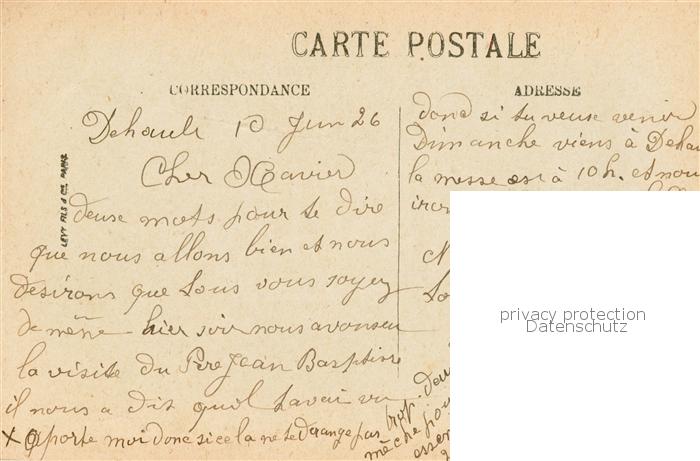 CARTE POSTALE
CORRESPONDANCE
ADRESSE
LEVY FILS & Cie PARIS
10 Juin 26
Cher Xavier
deuse mots pour te dire
que nous allons bien et nous
desirons que tous vous soyez
de même hier soir nous avons eu
la visite du Pere Jean Baptiste
il nous a dit qu'il t'avait vu
X aporte moi donc si cela ne te derange pas
trop
donc si tu veuse venir
Dimanche viens à
la messe est à 10 h. et nous
privacy protection
Datenschutz